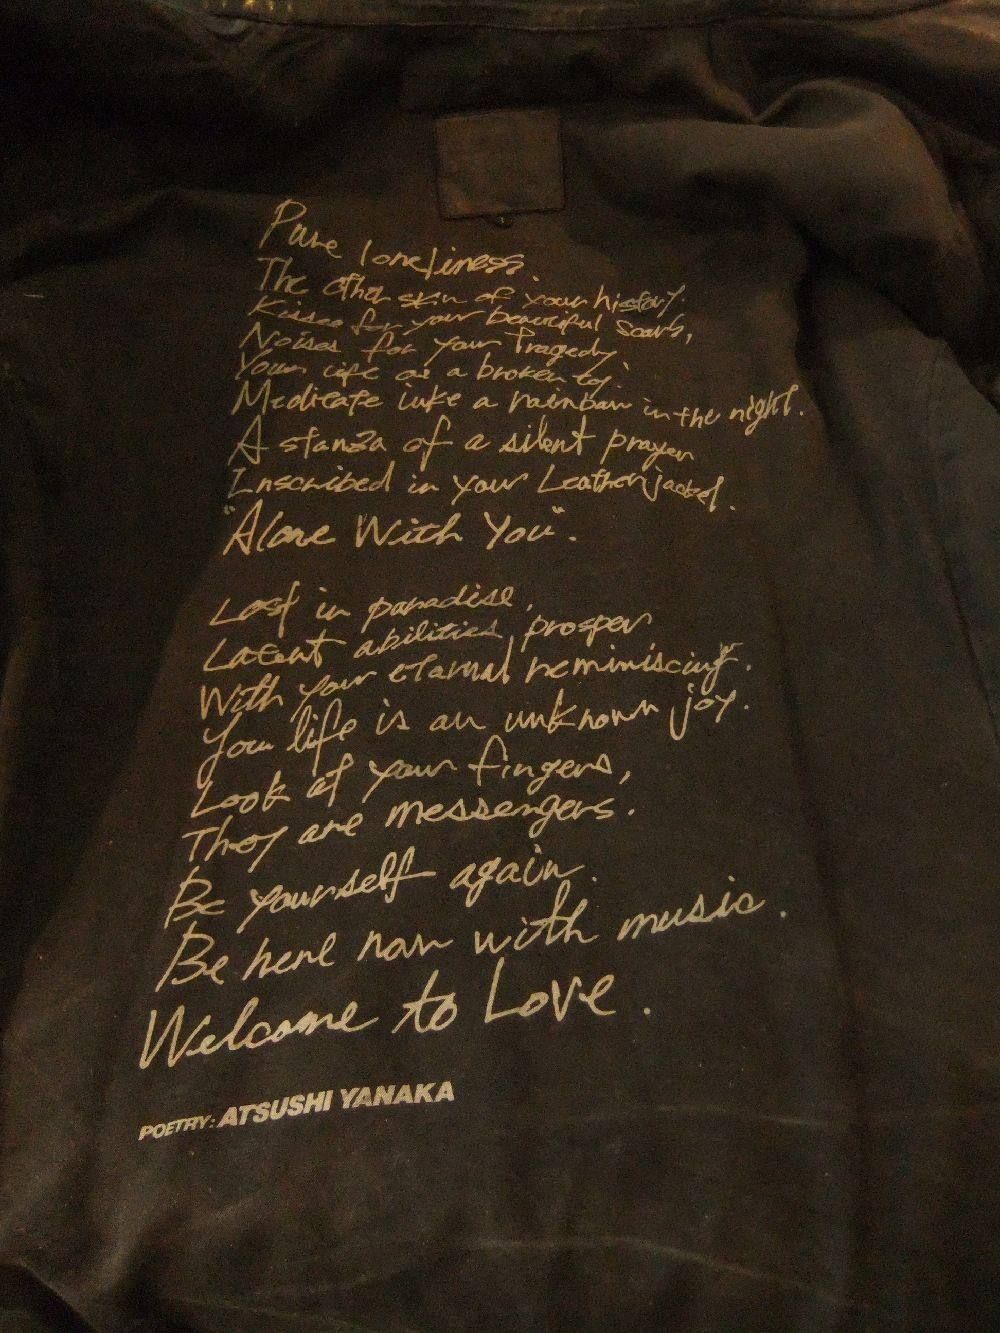 Pure loneliness.
The other skin of your history.
Kisses for your beautiful scars,
Noises for your Tragedy.
Your life as a broken toy.
Medicate like a rainbow in the night.
A stanza of a silent prayer
Inscribed in your Leather jacket.
"Alone With You".
Lost in paradise,
Latent abilities prosper
With your eternal reminiscing.
Your life is an unknown joy.
Look at your fingers,
They are messengers.
Be yourself again.
Be here now with music.
Welcome to Love.
POETRY: ATSUSHI YANAKA